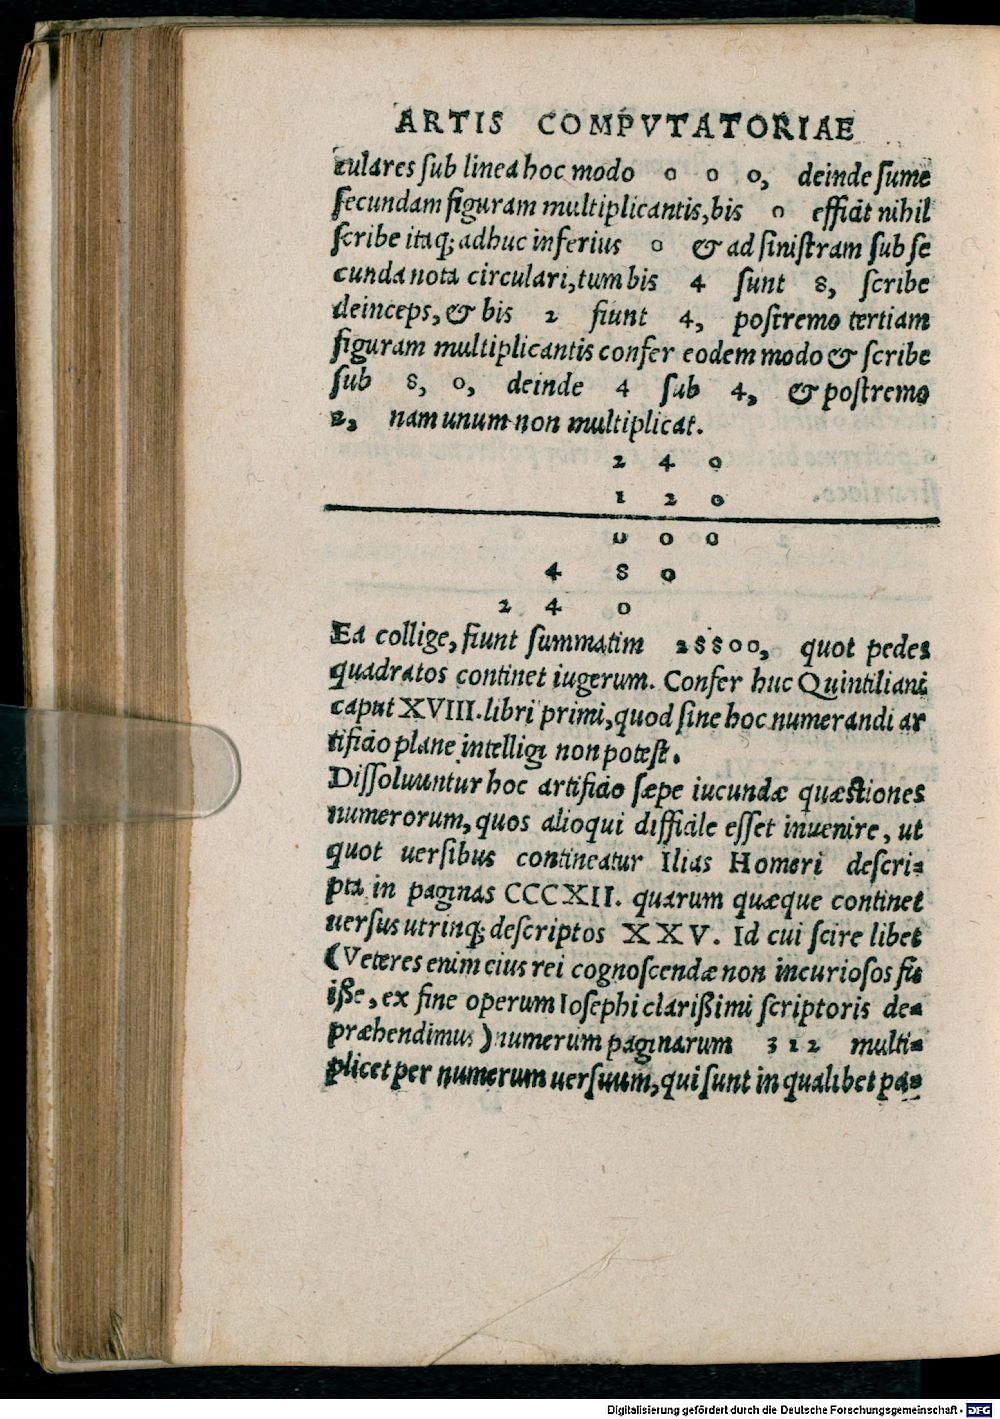 ARTIS COMPVTATORIAE
culares sub linea hoc modo 0 0 0, deinde sume
secundam figuram multiplicantis, bis 0 efficit nihil
scribe itaq; adhuc inferius 0 & ad sinistram sub se
cunda nota circulari, tum bis 4 sunt 8, scribe
deinceps, & bis 2 fiunt 4, postremo tertiam
figuram multiplicantis confer eodem modo & scribe
sub 8, 0, deinde 4 sub 4, & postremo
2, nam unum non multiplicat.
2 4 0
1 2 0
0 0 0
4 8 0
2 4 0
Ea collige, fiunt summatim 28800, quot pedes
quadratos continet iugerum. Confer huc Quintiliani
caput XVIII. libri primi, quod sine hoc numerandi ar
tificio plane intelligi non potest.
Dissoluuntur hoc artificio sæpe iucundæ quæstiones
numerorum, quos alioqui difficile esset inuenire, ut
quot uersibus contineatur Ilias Homeri descri-
pta in paginas CCCXII. quarum quæque continet
uersus utrinq; descriptos XXV. Id cui scire libet
(Veteres enim eius rei cognoscendæ non incuriosos fu
isse, ex fine operum Iosephi clarißimi scriptoris de-
præhendimus) numerum paginarum 312 multi-
plicet per numerum uersuum, qui sunt in qualibet pa-
Digitalisierung gefördert durch die Deutsche Forschungsgemeinschaft - DFG